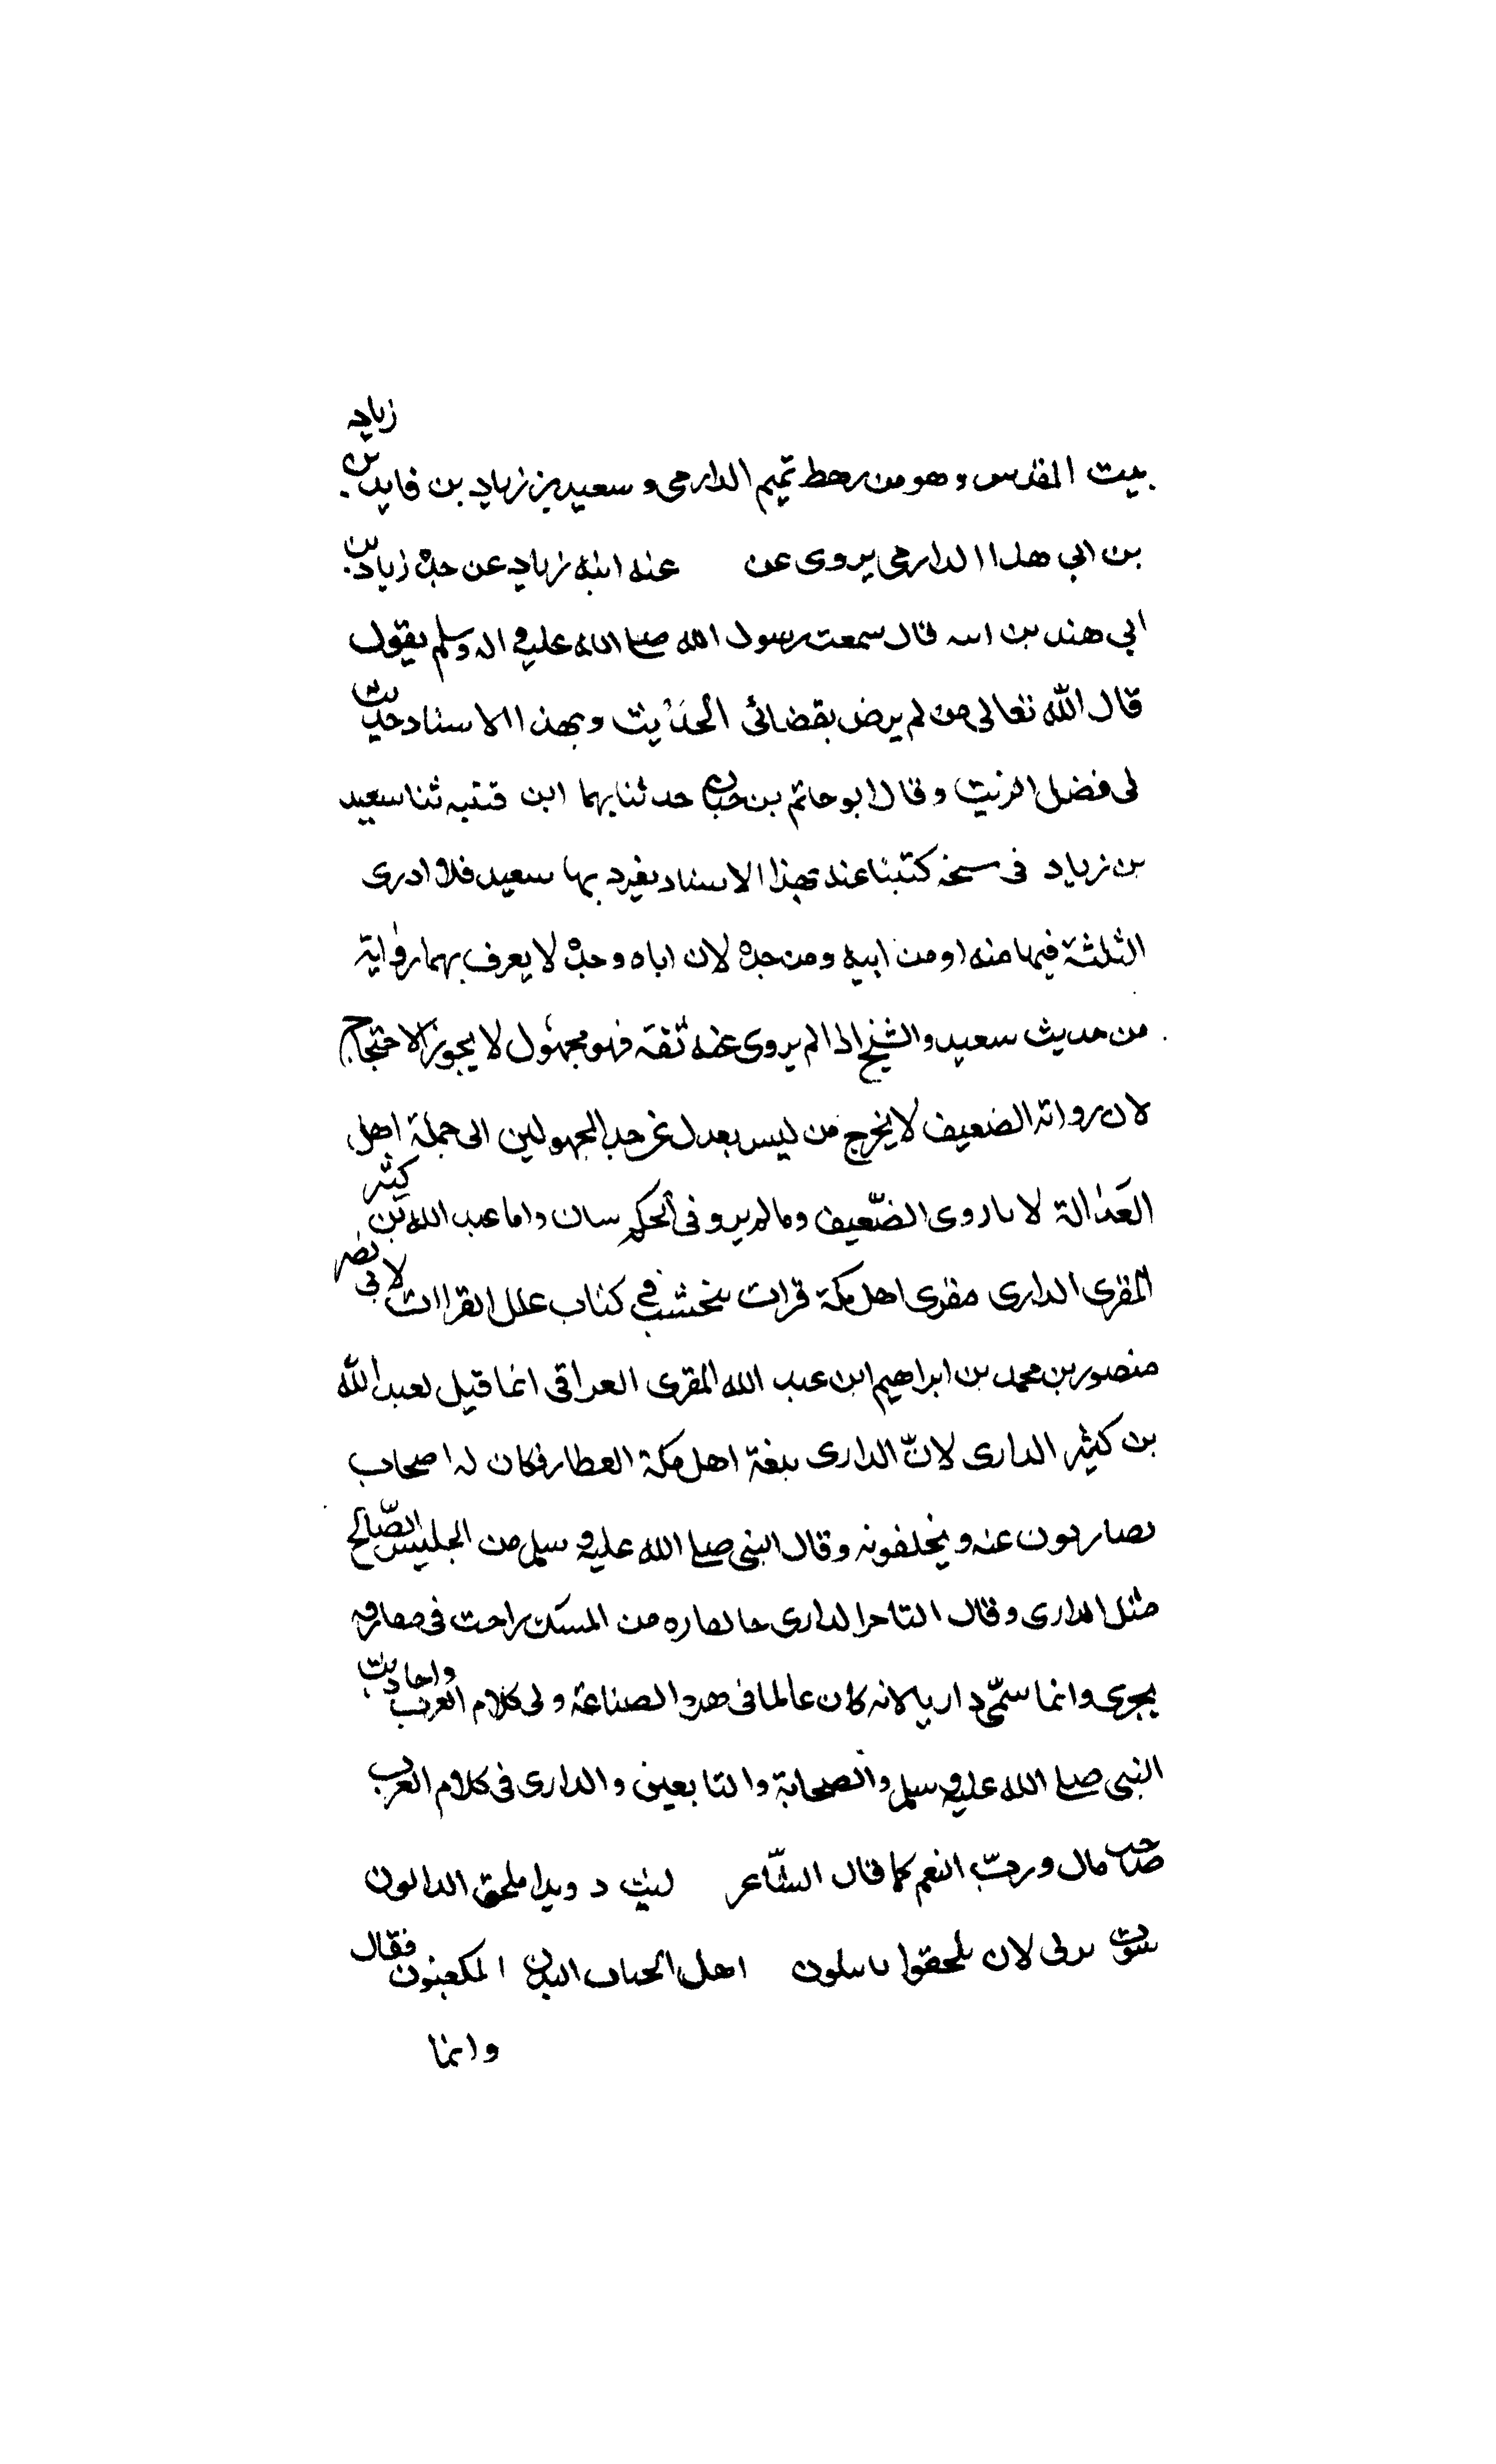 بيت المقدس وهو من رهط تميم الدارمى وسعيد بن زياد بن فايد بن زياد
بن ابي هندا الدارمى يروى عن عنه ابنه زياد عن جده زياد بن
ابي هند بن قال سمعت رسول الله صلى الله عليه و اله وسلم يقول
قال الله تعالى من لم يرض بقضائى الحديث وبهذا الاسناد حديث
فى فضل الزبيب وقال ابو حاتم بن حبان حدثنا بهما ابن قتيبه ثنا سعيد
بن زياد فى نسخه كتبنا عنه بهذا الاسناد تفرد بها سعيد فلا ادرى
الثلثة فيها منه او من ابيه ومن جده لان اباه وجده لا يعرف بهما رواية
من حديث سعيد والشيخ اذا لم يروى عنه ثقه فهو مجهول لا يجوز الاحتجاج
لان رواته الضعيف لا يخرج من ليس بعدل عن حد المجهولين الى جملة اهل
العدالة لان ما روى الضعيف وما لم يرو فى الحكم سان واما عبد الله بن كثير
المقرى الدارى مقرى اهل مكة قرات بنخشب فى كتاب علل القراات لابى نصر
منصور بن محمد بن ابراهيم ابن عبد الله المقرى العراقى انما قيل لعبد الله
بن كثير الدارى لانّ الدارى بلغة اهل مكة العطار فكان له اصحاب
يضاربون عنه ويخلفونه وقال النبى صلى الله عليه وسلم من الجليس الصّالح
مثل الدارى وقال الدارى من المسك راحت فى مفارقه
يجرى وانما سمّى داريا لانه كان عالما فى هذه الصناعة و فى كلام العرب واحاديث
النبى صلى الله عليه وسلم والصحابة والتابعين والدارى فى كلام العرب
صاحب مال وربّ النعم كما قال الشّاعر لبث رويدا يلحق الداريون
سوف ترى لان يلحقوا ما يبلون اهل الجباب البدن المكفيون فقال
وانما